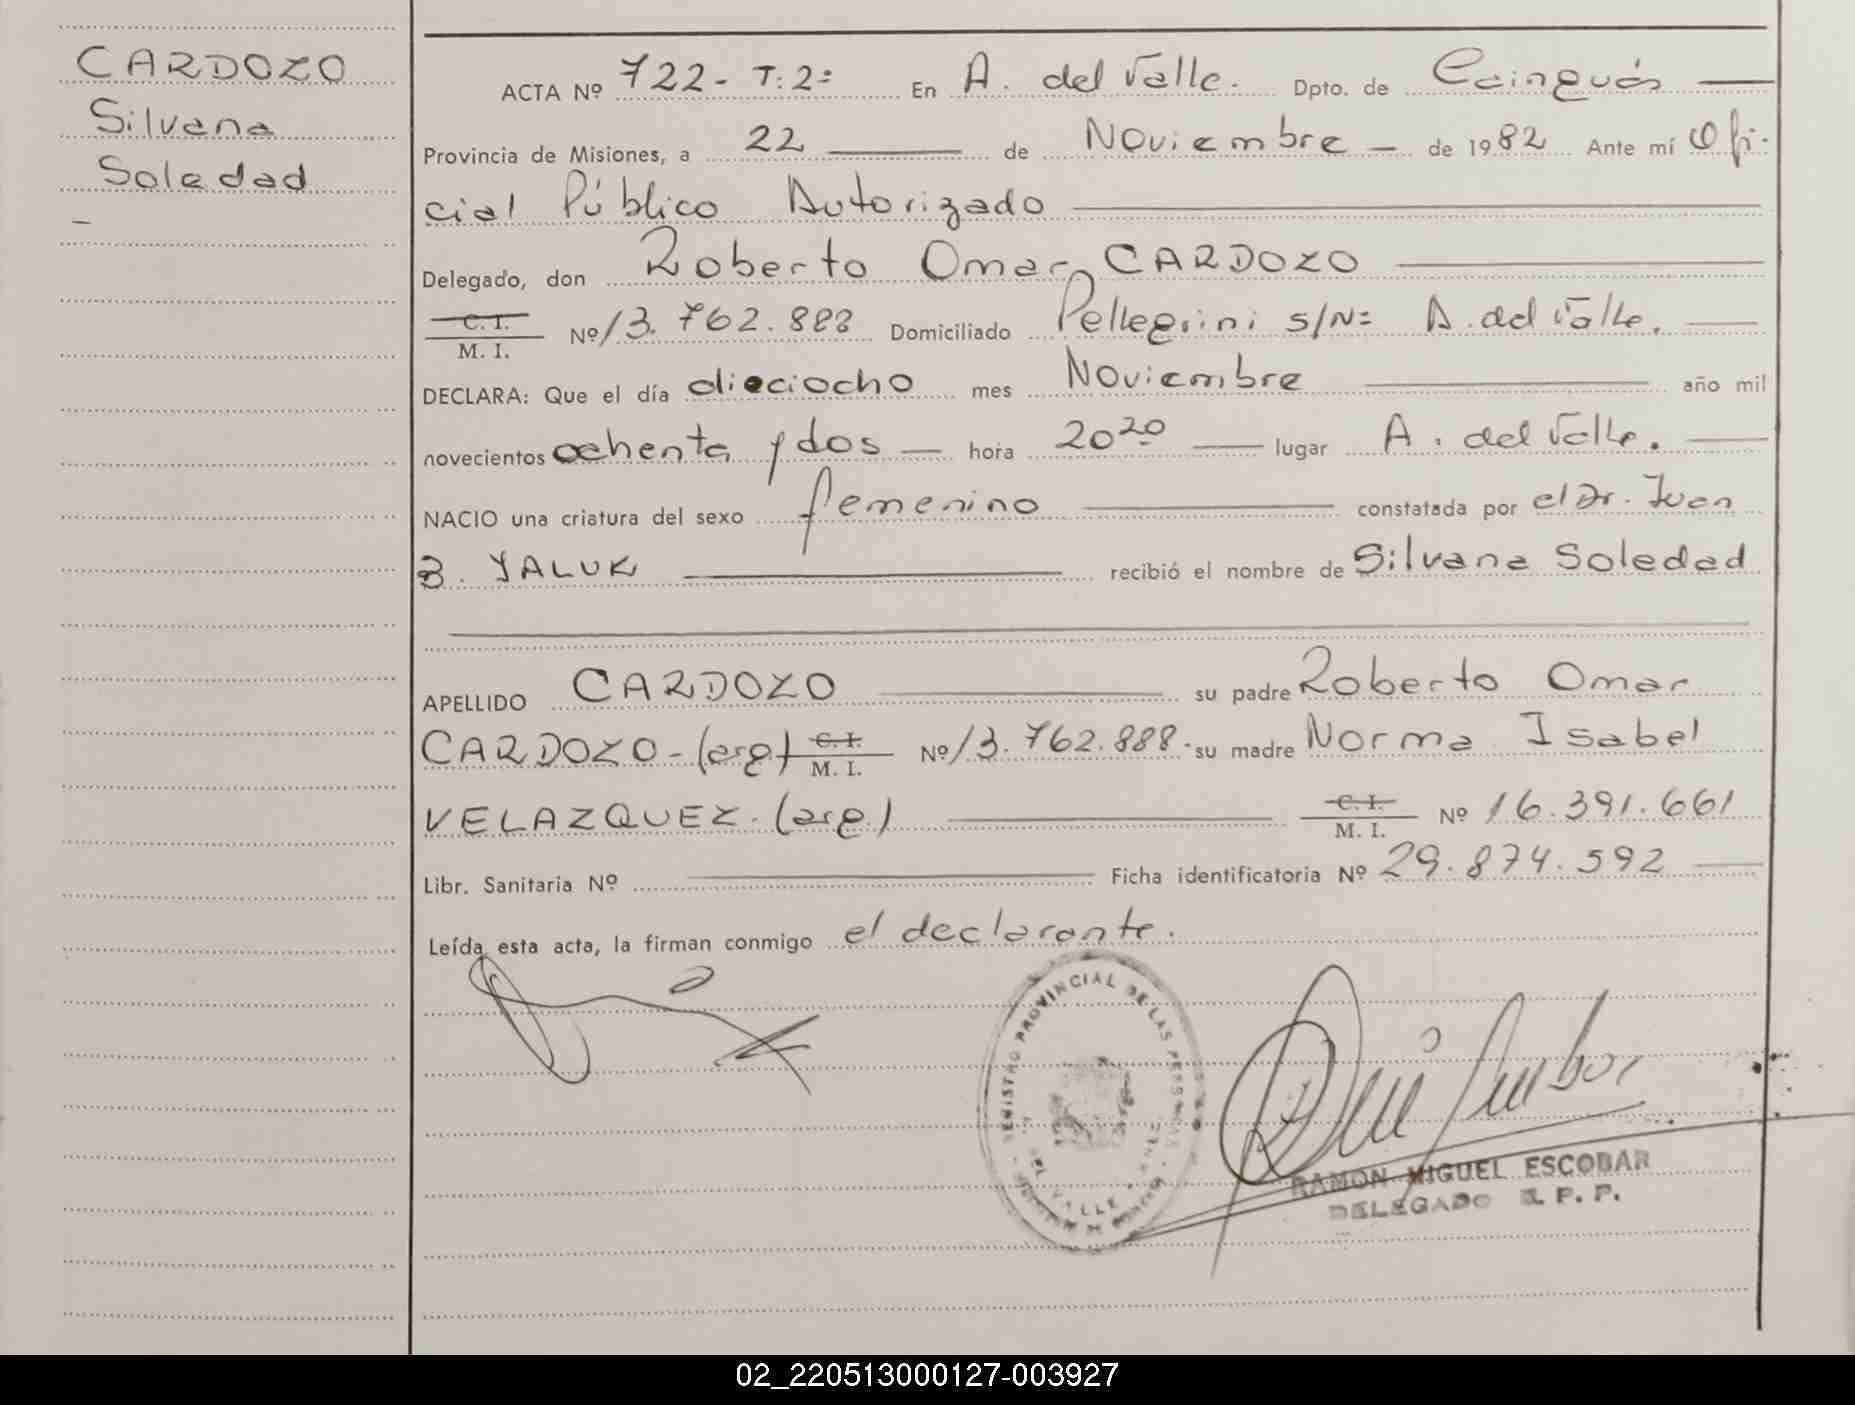 CARDOZO
Silvana
Soledad
ACTA Nº 722- T: 2º En A. del Valle. Dpto. de Cainguás
Provincia de Misiones, a 22 de Noviembre de 1982 Ante mí Ofi-
cial Público Autorizado
Delegado, don Roberto Omar CARDOZO
C. I.
M. I. Nº 13.762.888 Domiciliado Pellegrini s/Nº A. del Valle.
DECLARA: Que el día dieciocho mes Noviembre año mil
novecientos ochenta y dos hora 20 20 lugar A. del Valle.
NACIO una criatura del sexo femenino constatada por el Dr. Juan
B. YALUK recibió el nombre de Silvana Soledad
APELLIDO CARDOZO su padre Roberto Omar
CARDOZO - (arg) C. I. M. I. Nº 13.762.888. su madre Norma Isabel
VELAZQUEZ. (arg.) C. I. M. I. Nº 16.391.661
Libr. Sanitaria Nº Ficha identificatoria Nº 29.874.592
Leída esta acta, la firman conmigo el declarante.
REGISTRO PROVINCIAL DE LAS PERSONAS
DEL VALLE
RAMON MIGUEL ESCOBAR
DELEGADO R. P. P.
02_220513000127-003927